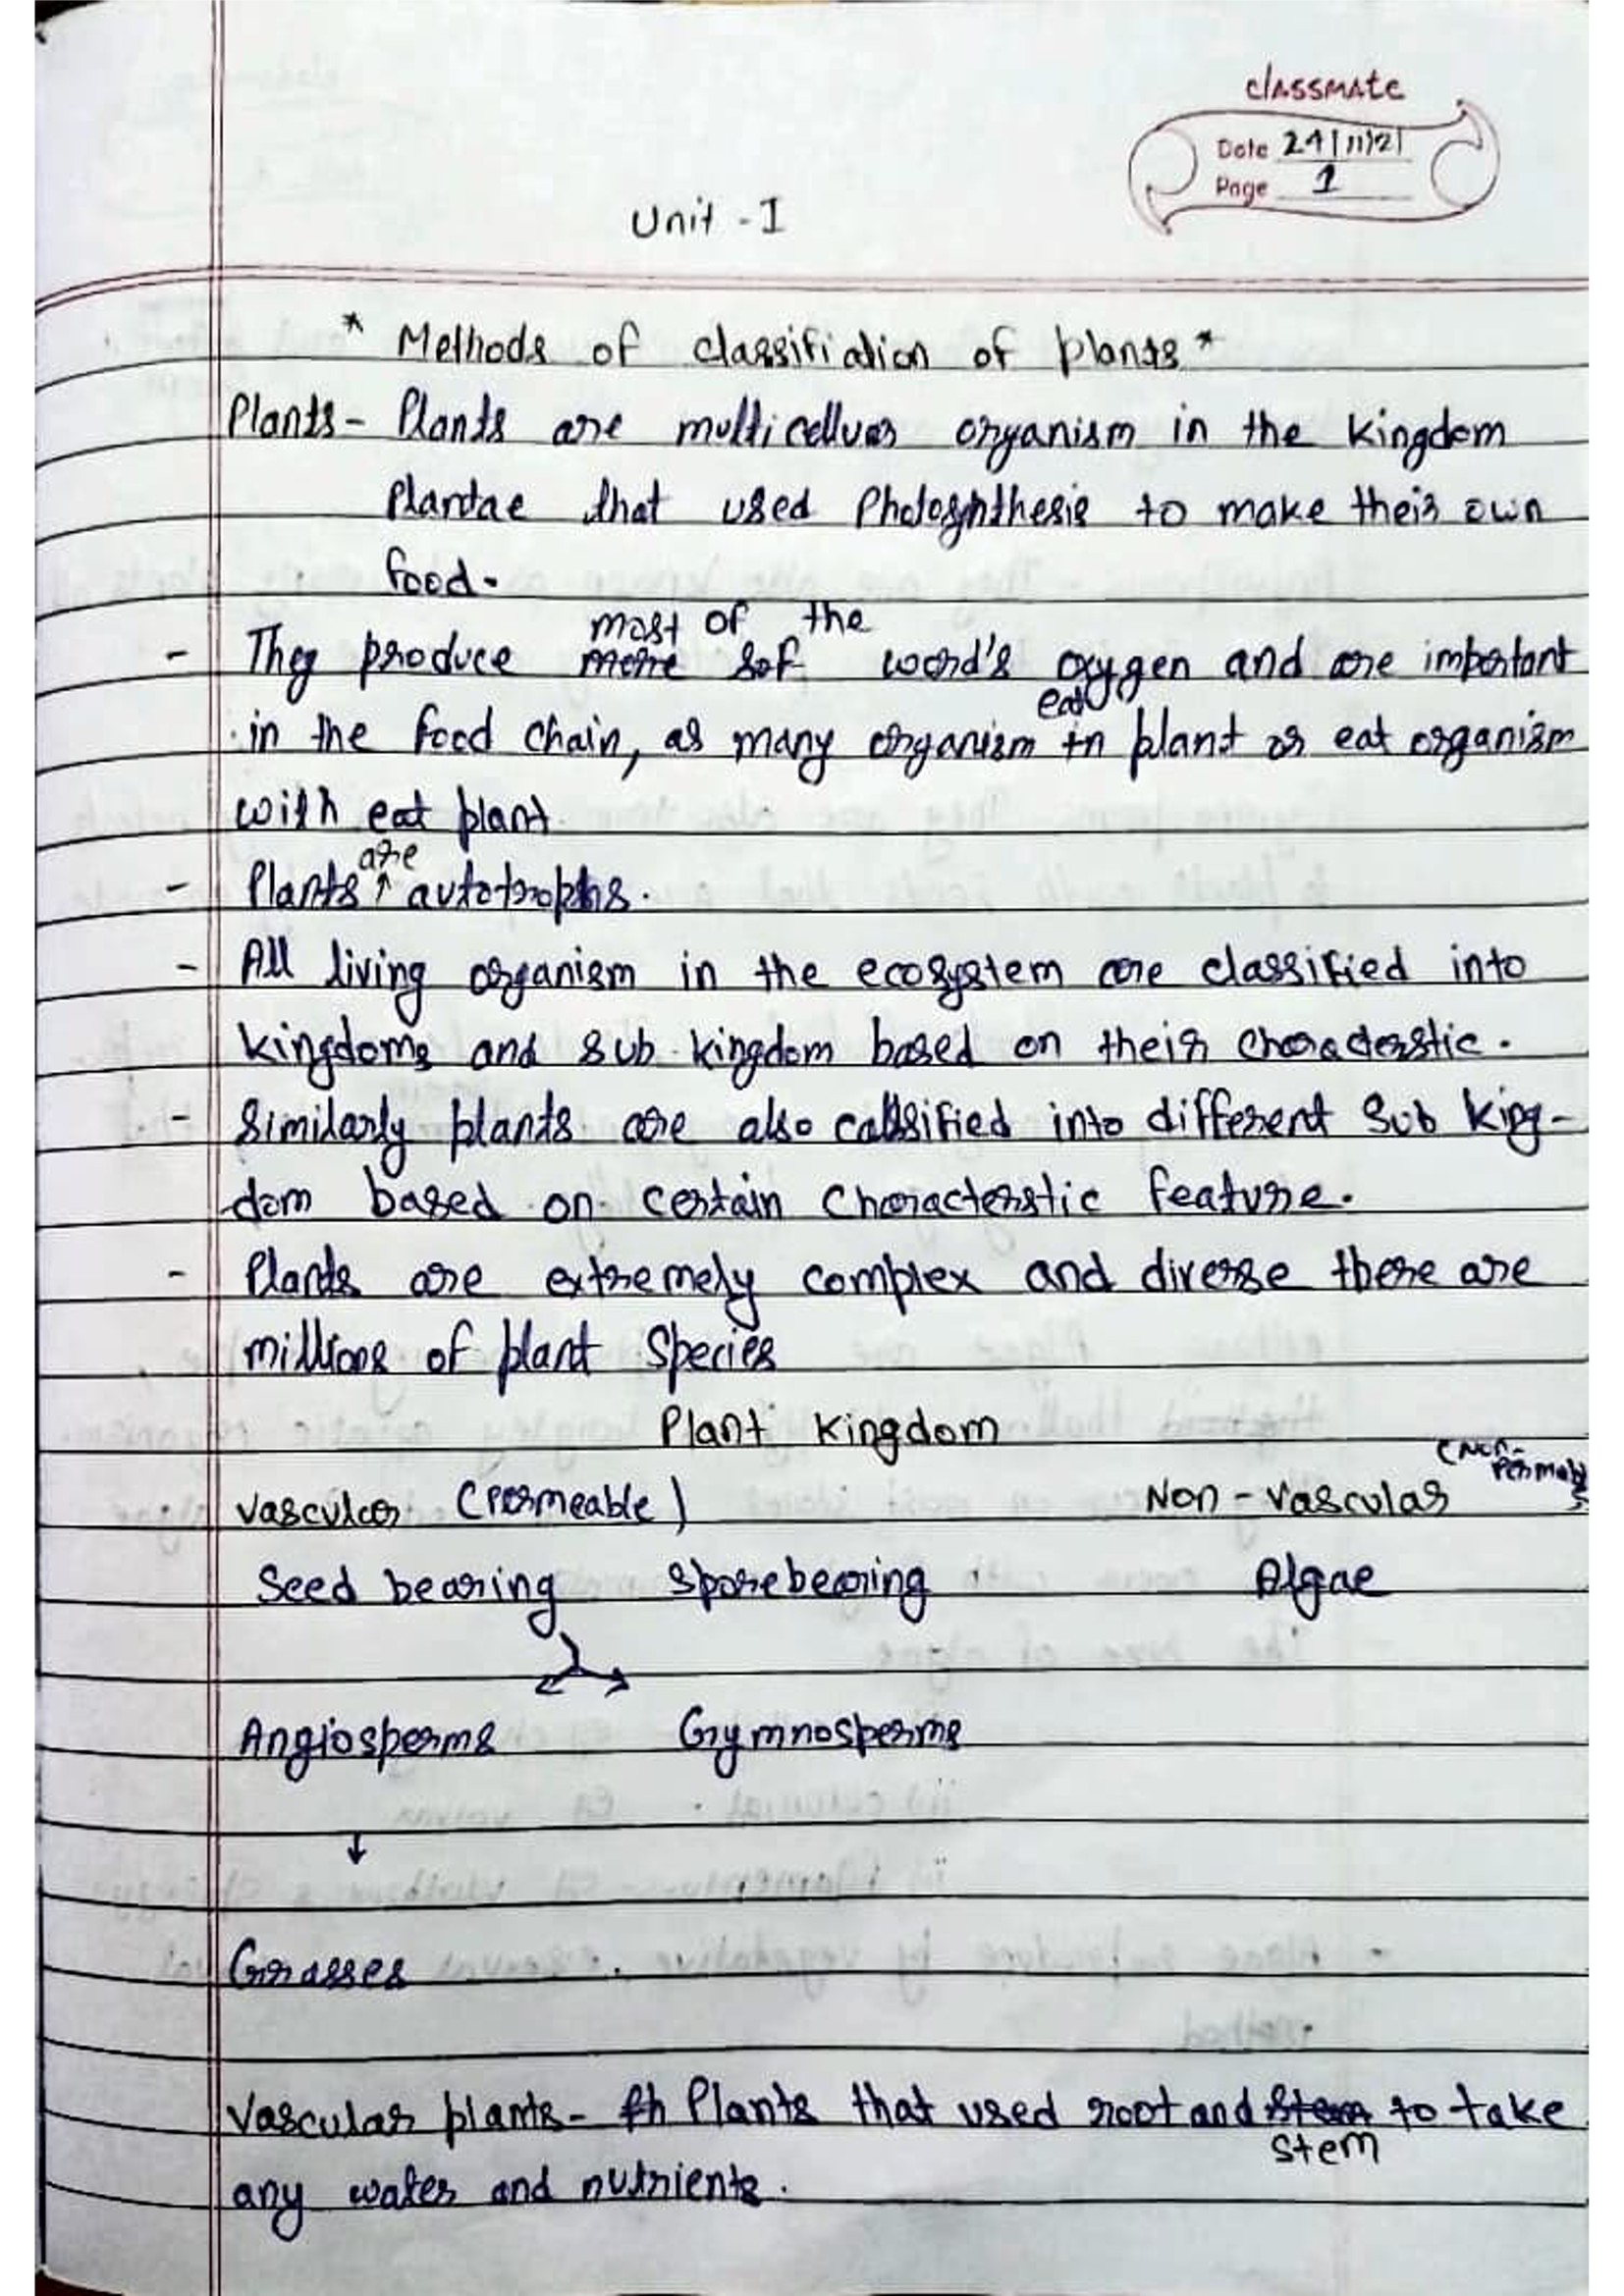 classmate
Date 24/11/21
Page 1
Unit - I
* Methods of classifiation of plants *
Plants - Plants are multicelluar organism in the kingdom
Plantae that used Photosynthesis to make their own
food.
most of the
- They produce more sof word's oxygen and are important
eat
in the food chain, as many organism in plant or eat organism
with eat plant
are
- Plants ↑ autotrophs.
- All living organism in the ecosystem are classified into
kingdoms and sub kingdom based on their characterstic.
- Similarly plants are also calssified into different Sub king-
dom based on certain characterstic feature.
- Plants are extremely complex and diverse there are
millions of plant species
Plant kingdom
(Non-
vascular (Permeable) Non-vascular
Seed bearing Sporebearing Algae
Angiosperms Gymnosperms
↓
Grasses
Vascular plants - Plants that used root and stem to take
stem
any water and nutrients.